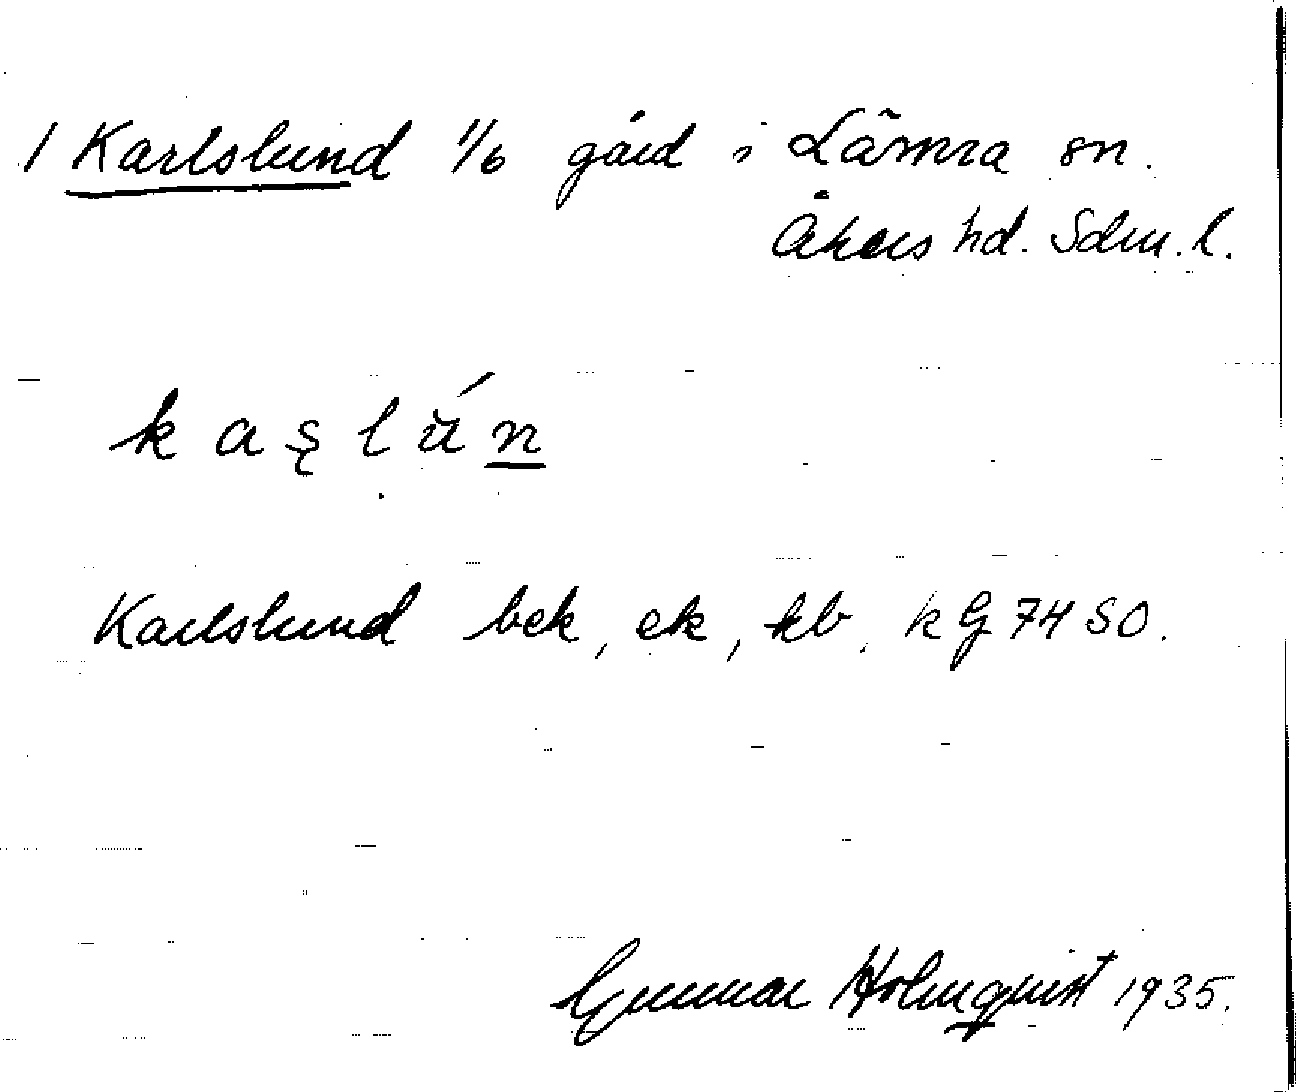 1 Karlslund 1/6 gård i Länna sn.
Åkers hd. Sdm. l.
k a s̨ l ú n
Karlslund bek, ek, kb, k G 74 SO.
Gunnar Holmquist 1935.